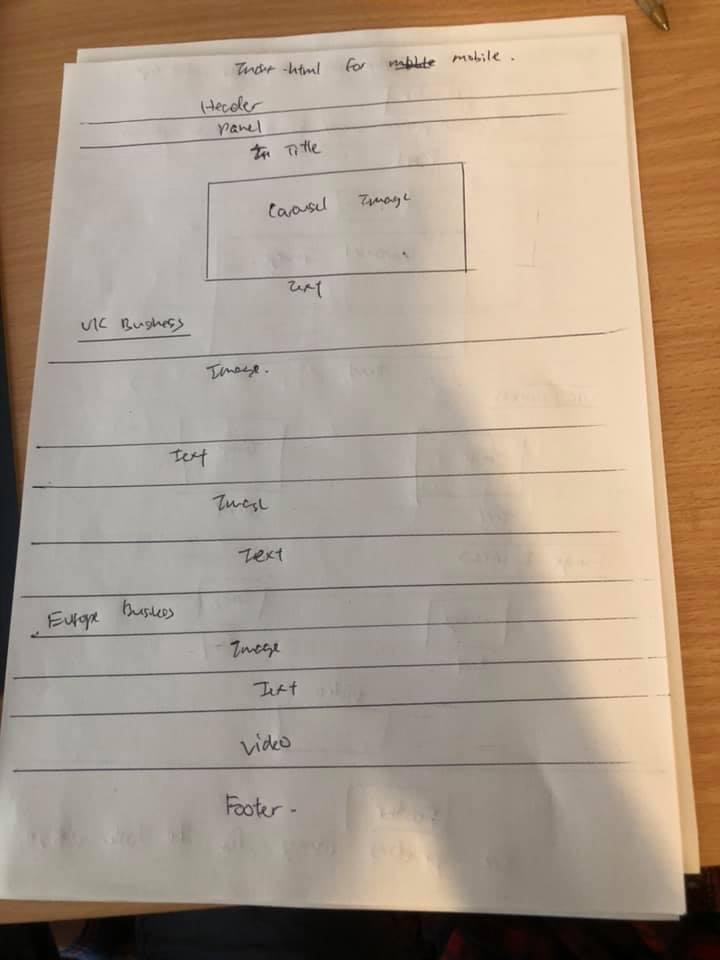 Index-html for mobile.
Header
Panel
Title
Carousel Image
Text
UK Business
Image.
Text
Image
Text
Europe Business
Image
Text
Video
Footer-